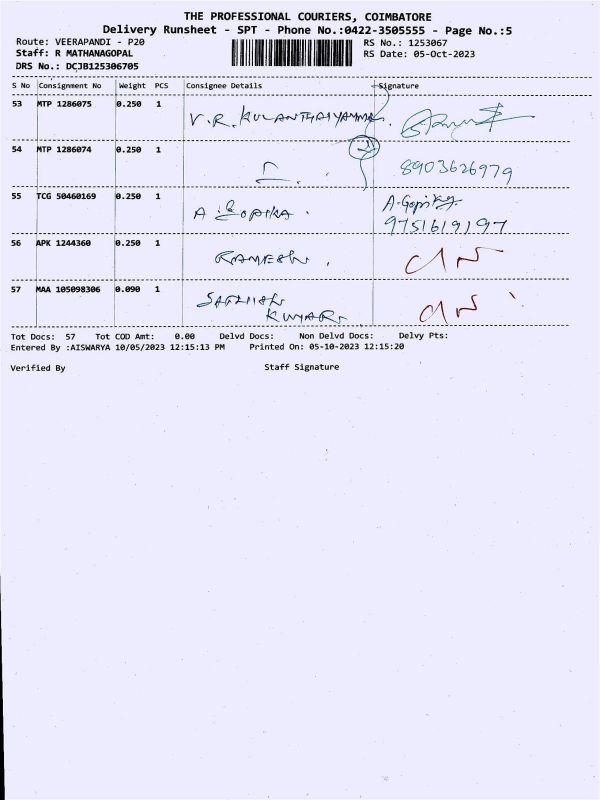 THE PROFESSIONAL COURIERS, COIMBATORE
Delivery Runsheet - SPT - Phone No.:0422-3505555 - Page No.:5
Route: VEERAPANDI - P20 RS No.: 1253067
Staff: R MATHANAGOPAL RS Date: 05-Oct-2023
DRS No.: DCJB125306705
S No Consignment No Weight PCS Consignee Details Signature
53 MTP 1286075 0.250 1
V.R. KULANTHAIYAMMAL.
54 MTP 1286074 0.250 1
8903626979
55 TCG 50460169 0.250 1 A.Gopika
A GOPIKA . 9751619197
56 APK 1244360 0.250 1
RAMESH .
57 MAA 105098306 0.090 1
SATHISH
KUMAR.
Tot Docs: 57 Tot COD Amt: 0.00 Delvd Docs: Non Delvd Docs: Delvy Pts:
Entered By :AISWARYA 10/05/2023 12:15:13 PM Printed On: 05-10-2023 12:15:20
Verified By Staff Signature